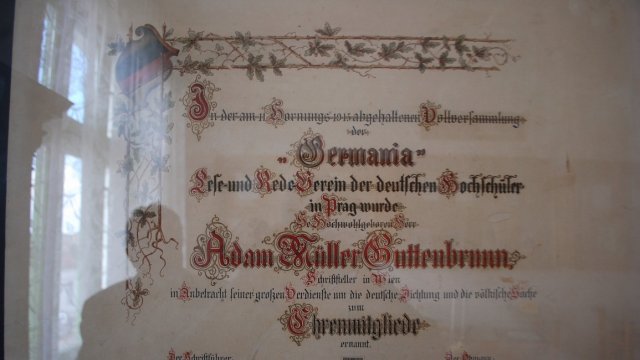 In der am 11. Hornungs 1915 abgehaltenen Vollversammlung
der
„Germania"
Lese- und Rede-Verein der deutschen Hochschüler
in Prag wurde
Se. Hochwohlgeboren Herr
Adam Müller Guttenbrunn,
Schriftsteller in Wien
in Anbetracht seiner großen Verdienste um die deutsche Dichtung und die völkische Sache
zum
Ehrenmitgliede
ernannt.
Der Schriftführer: Der Obmann: